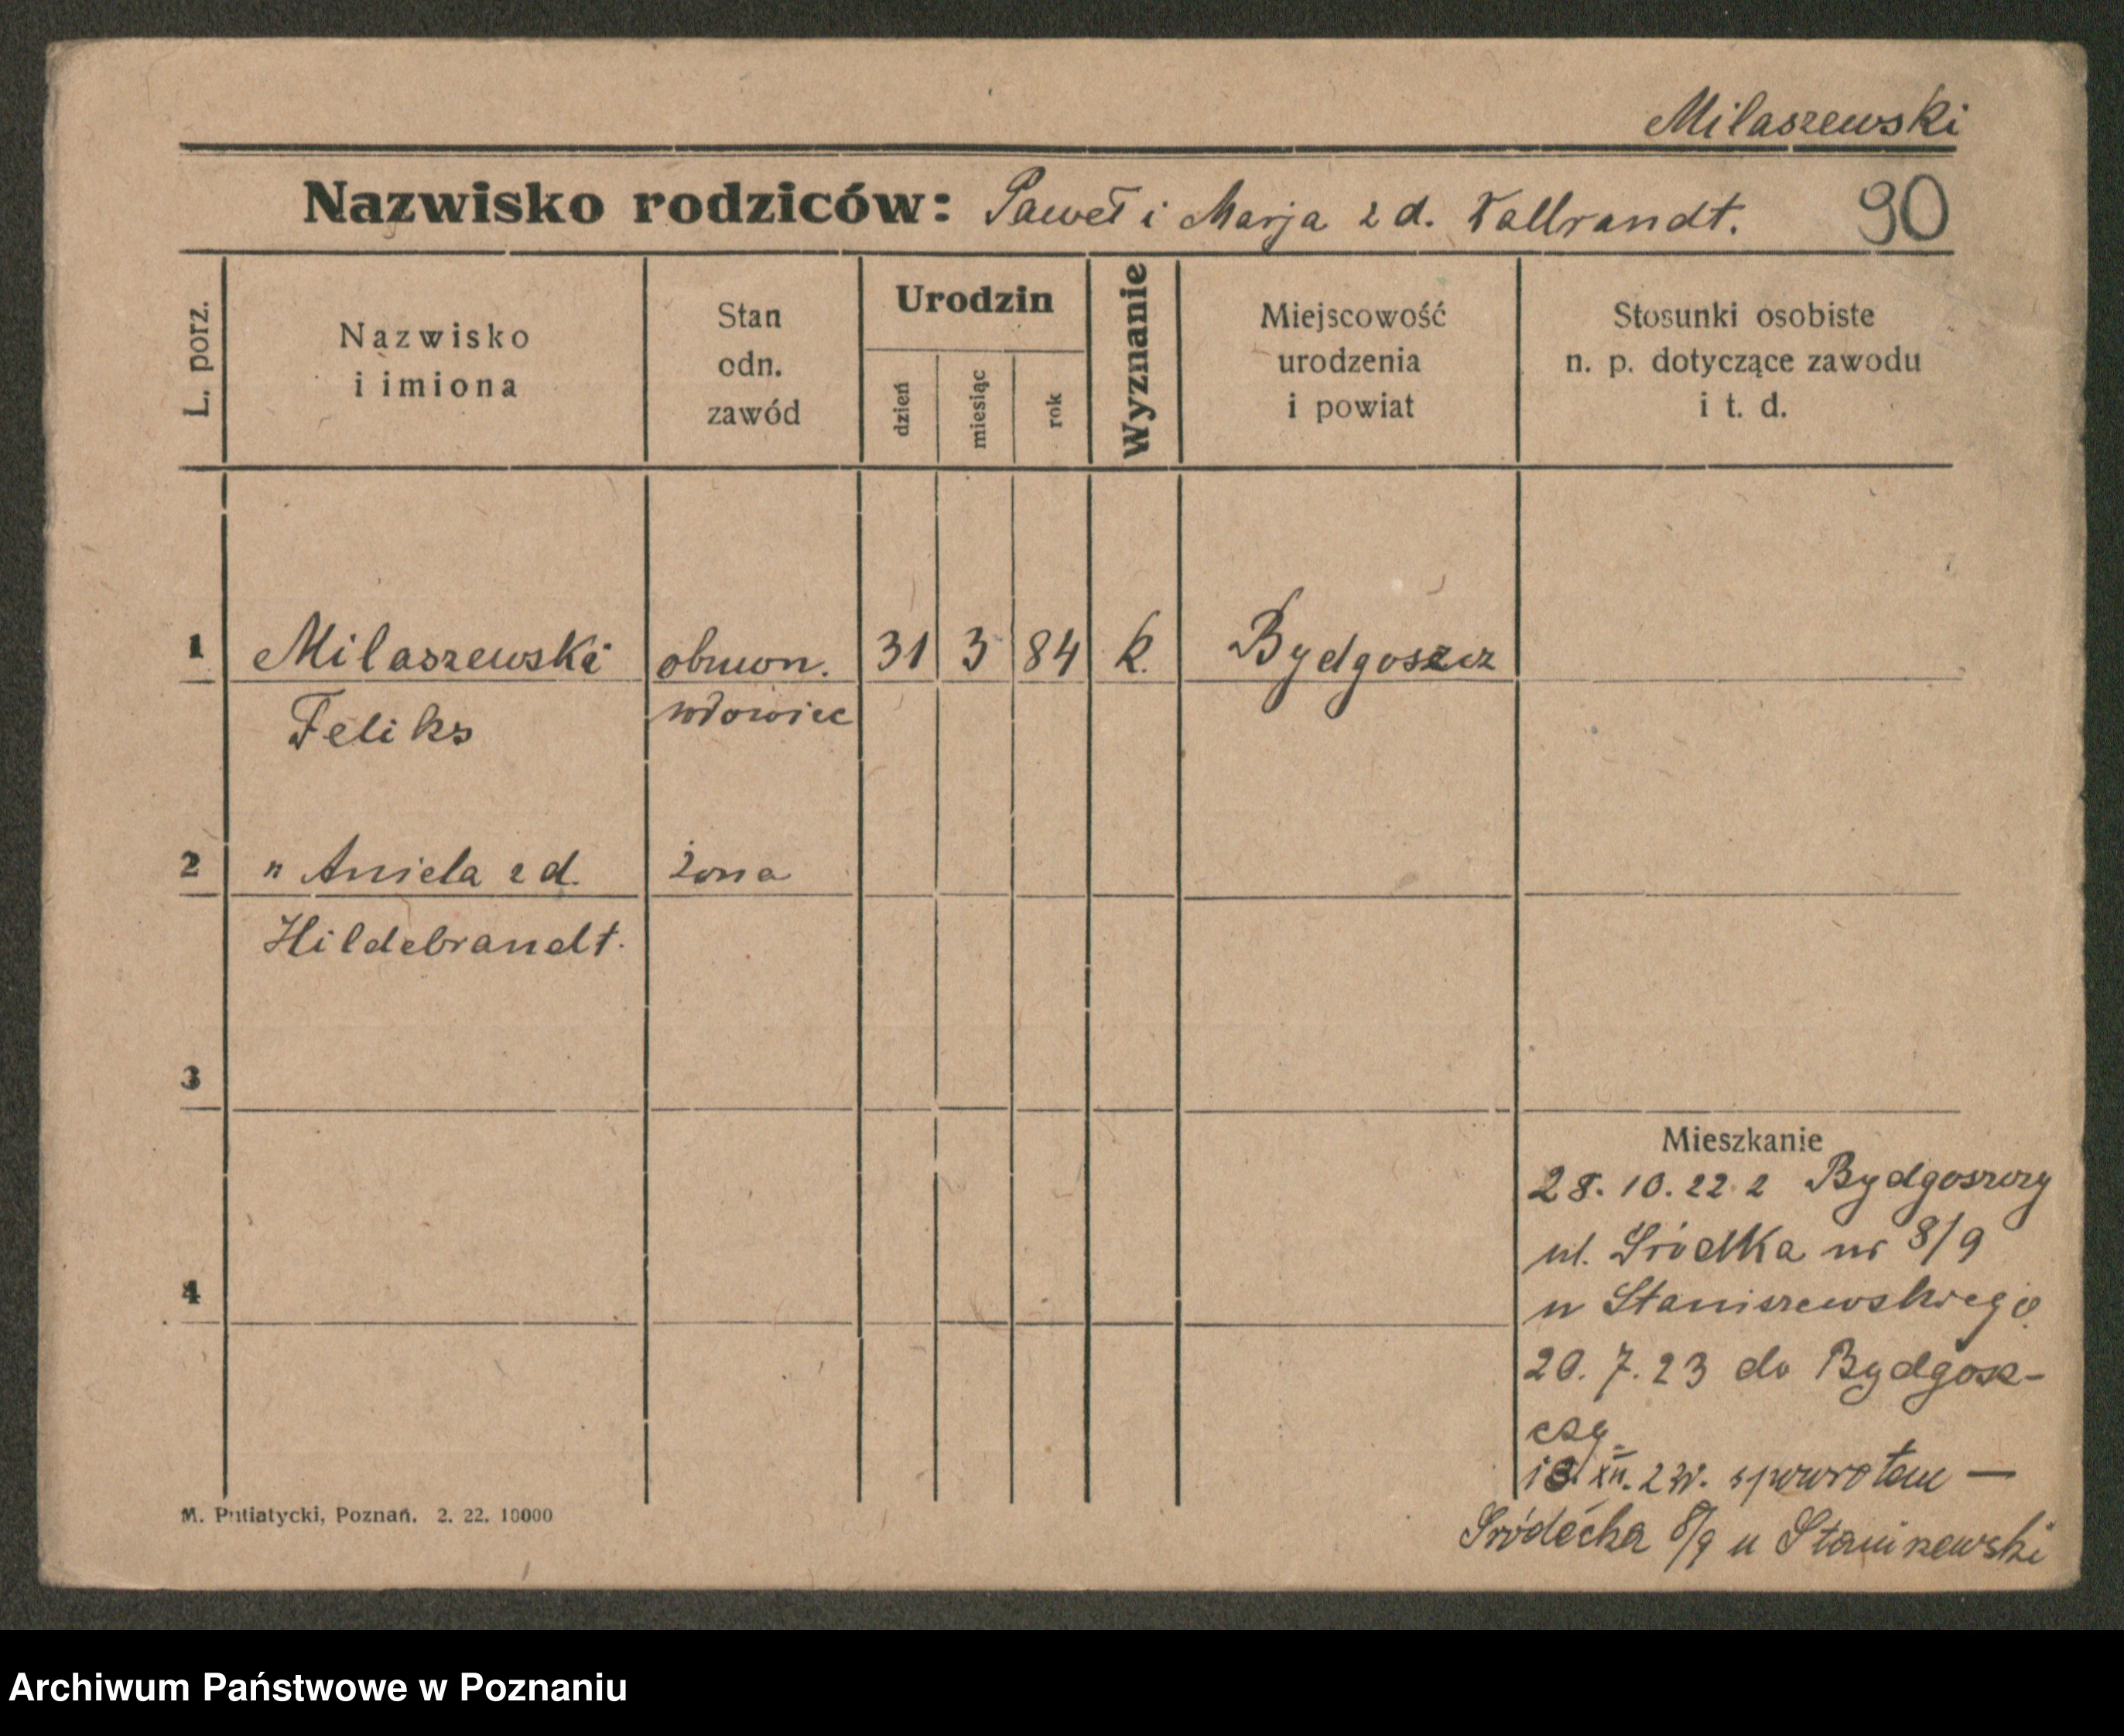 Milaszewski
Nazwisko rodziców: Paweł i Marja z d. Vallrandt. 90
L. porz.
Nazwisko
i imiona
Stan
odn.
zawód
Urodzin
dzień
miesiąc
rok
Wyznanie
Miejscowość
urodzenia
i powiat
Stosunki osobiste
n. p. dotyczące zawodu
i t. d.
1 Milaszewski obuwn. 31 3 84 k. Bydgoszcz
Feliks wdowiec
2 " Aniela z d. żona
Hildebrandt.
3
4
Mieszkanie
28. 10. 22 z Bydgoszczy
ul. Śródka nr 8/9
u Staniszewskiego
20. 7. 23 do Bydgosz-
czy
XII. spowrotem —
Śródecka 8/9 u Staniszewski
M. Putiatycki, Poznań. 2. 22. 10000
Archiwum Państwowe w Poznaniu